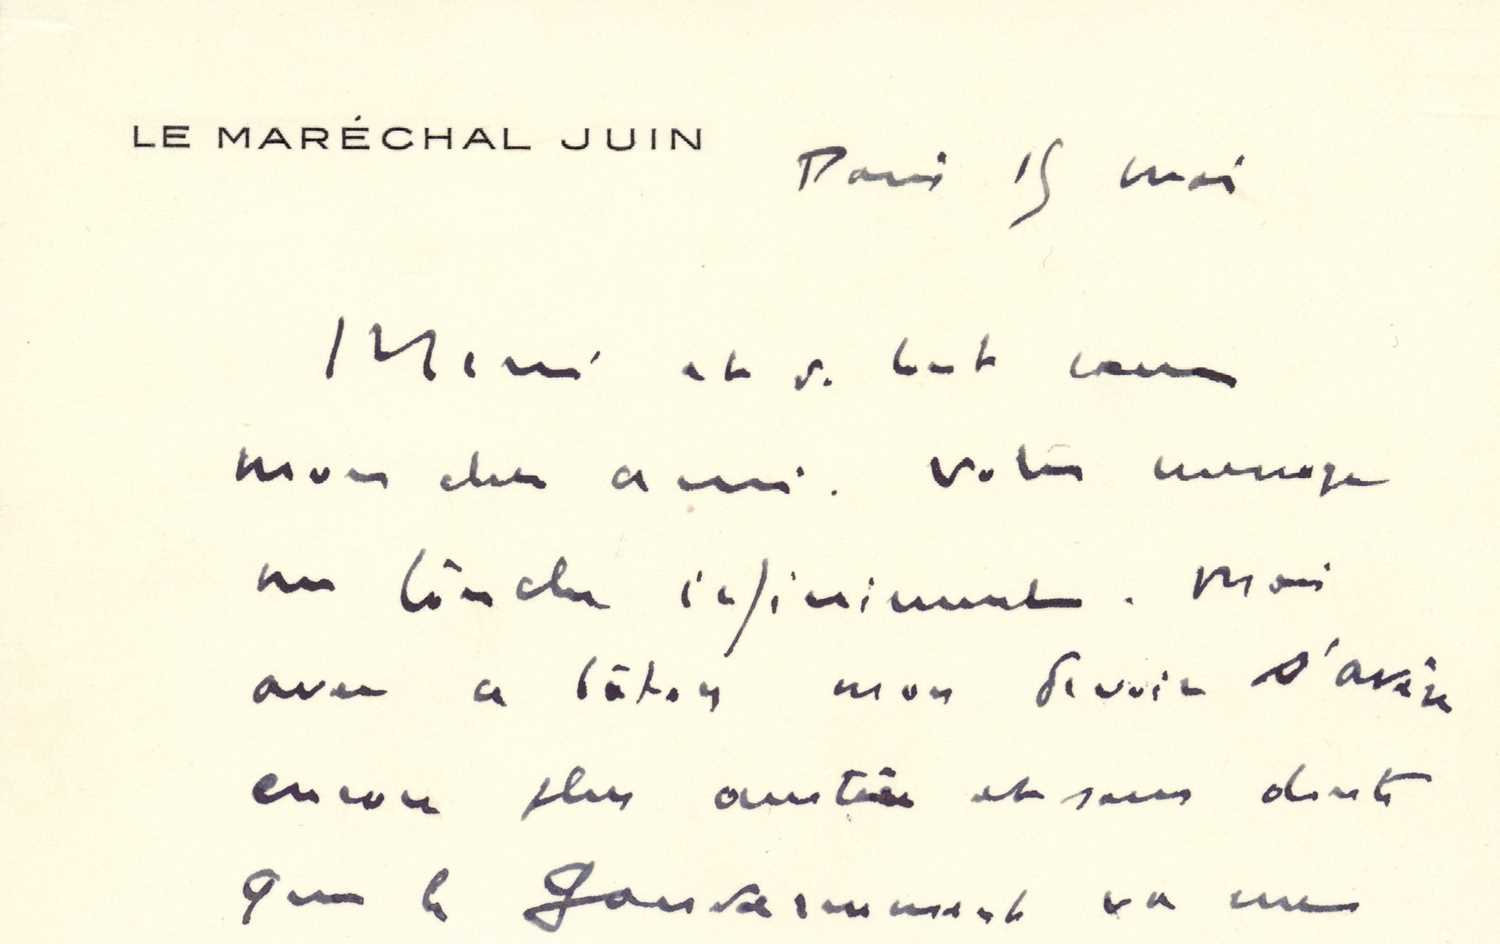 LE MARÉCHAL JUIN
Paris 15 mai
Merci et de tout cœur
mon cher ami. Votre message
me touche infiniment. Mais
avec ce bâton mon devoir s'avère
encore plus austère et sans doute
que le Gouvernement va me